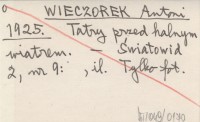 WIECZOREK Antoni
1925. Tatry przed halnym
wiatrem. — Światowid
2, nr 9: , il. Tylko fot.